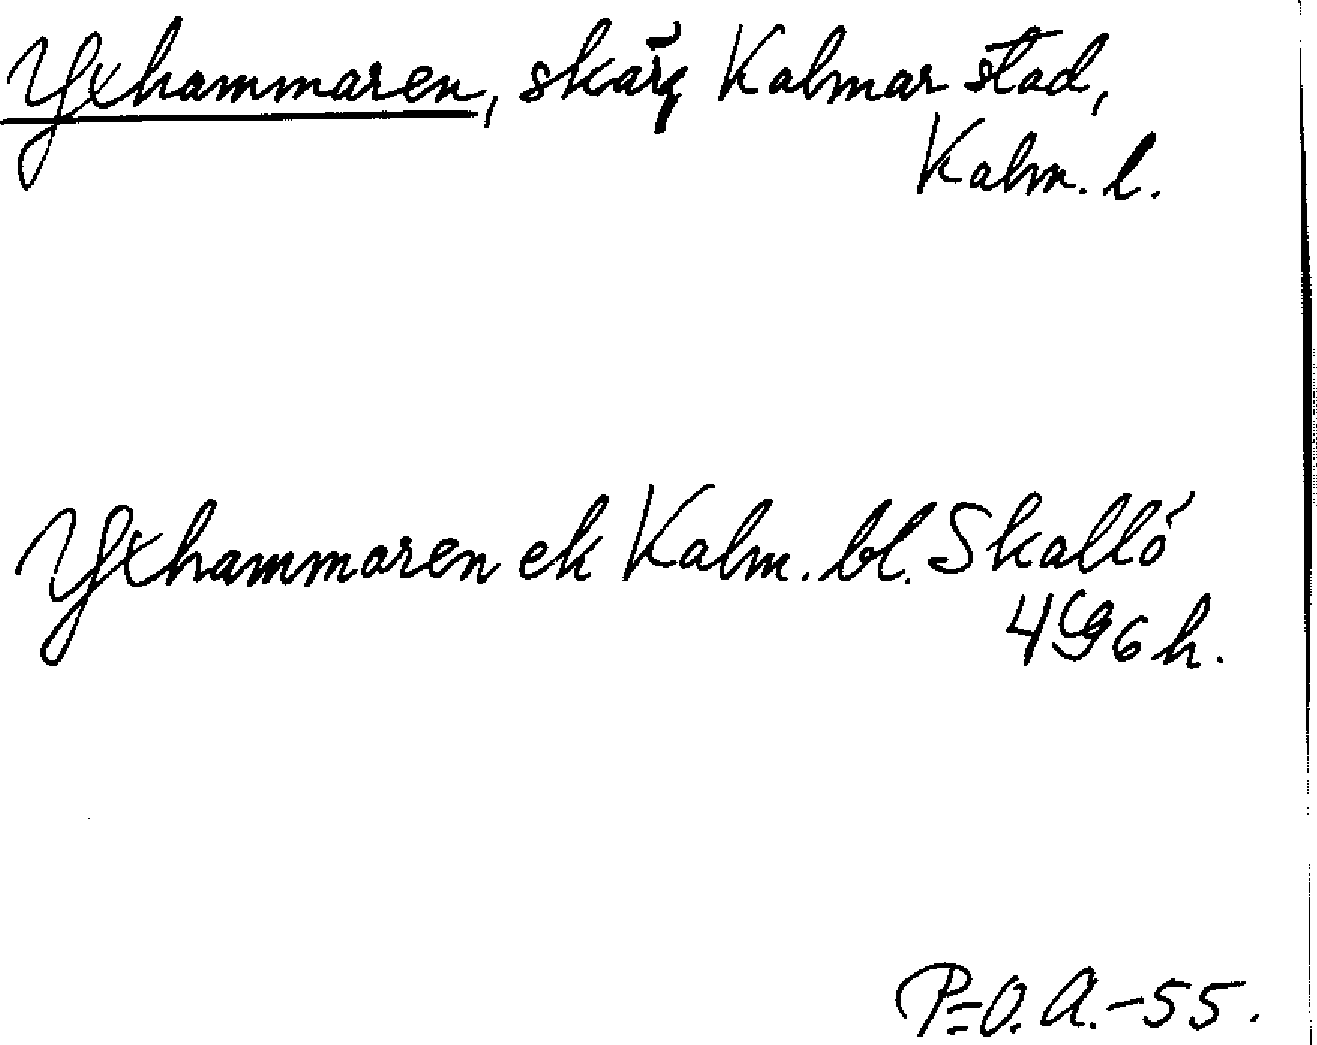 Yxhammaren, skär, Kalmar stad,
Kalm. l.
Yxhammaren ek Kalm. bl. Skallö
4G6h.
P-O.A.-55.